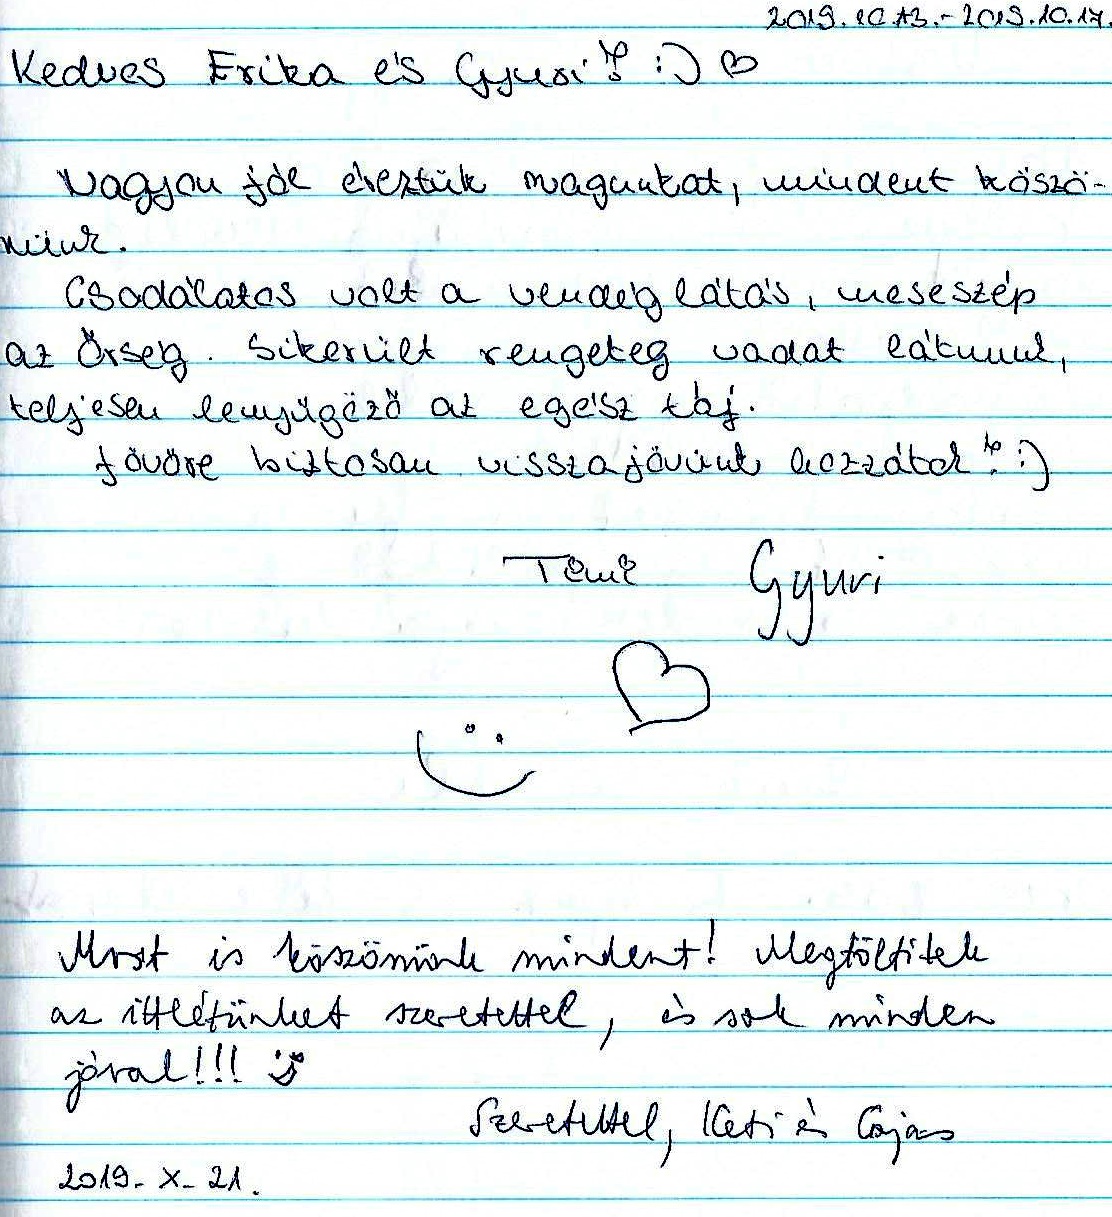 2019.10.13.-2019.10.17.
Kedves Erika és Gyuri! :) ♡
Nagyon jól éreztük magunkat, mindent köszö-
nünk.
Csodálatos volt a vendéglátás, meseszép
az Őrség. Sikerült rengeteg vadat látnunk,
teljesen lenyűgöző az egész táj.
Jövőre biztosan visszajövünk hozzátok! :)
Timi Gyuri
Most is köszönünk mindent! Megtöltitek
az ittlétünket szeretettel, és sok minden
jóval!!! :)
Szeretettel, Kati és
2019. X. 21.